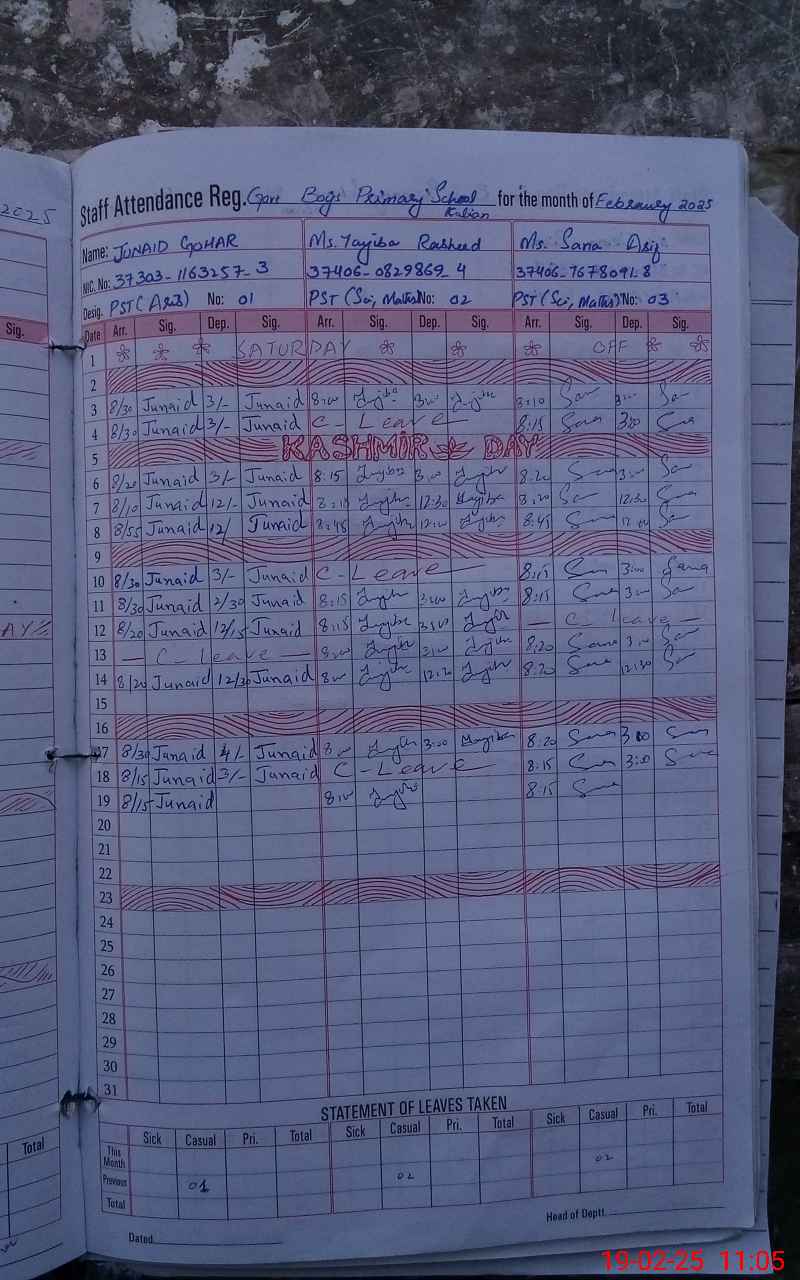 2025
Staff Attendance Reg. Govt Boys Primary School for the month of February 2025
Kalian
Name: JUNAID GOHAR Ms. Tayiba Rasheed Ms. Sana Asif
NIC. No: 37303-1163257-3 37406-0829869-4 37406-7678091-8
Desig. PST (Arts) No: 01 PST (Sci, Maths) No: 02 PST (Sci, Maths) No: 03
Sig. Date Arr. Sig. Dep. Sig. Arr. Sig. Dep. Sig Arr. Sig. Dep. Sig.
1 SATURDAY OFF
2
3 8/30 Junaid 3/- Junaid 8:00 Tayiba 3:00 Tayiba 8:10 San 3:00 San
4 8/30 Junaid 3/- Junaid C - Leave 8:15 Sana 3:00 Sana
5 KASHMIR DAY
6 8/20 Junaid 3/- Junaid 8:15 Tayiba 3:00 Tayiba 8:20 Sana 3:00 San
7 8/10 Junaid 12/- Junaid 8:10 Tayiba 12:30 Tayiba 8:20 San 12:30 Sana
8 8/55 Junaid 12/ Junaid 8:45 Tayiba 12:00 Tayiba 8:45 Sana 12:00 San
9
10 8/30 Junaid 3/- Junaid C - Leave 8:15 San 3:00 Sana
11 8/30 Junaid 2/30 Junaid 8:15 Tayiba 3:00 Tayiba 8:15 Sana 3:00 San
12 8/20 Junaid 12/15 Junaid 8:15 Tayiba 3:00 Tayiba C - leave
13 C - leave 8:00 Tayiba 3:00 Tayiba 8:20 Sana 3:00 San
14 8/20 Junaid 12/30 Junaid 8:00 Tayiba 12:30 Tayiba 8:20 Sana 12:30 San
15
16
17 8/30 Junaid 4/- Junaid 8:00 Tayiba 3:00 Tayiba 8:20 Sana 3:00 San
18 8/15 Junaid 3/- Junaid C - Leave 8:15 San 3:00 Sana
19 8/15 Junaid 8:00 Tayiba 8:15 Sana
20
21
22
23
24
25
26
27
28
29
30
31
STATEMENT OF LEAVES TAKEN
Total Sick Casual Pri. Total Sick Casual Pri. Total Sick Casual Pri. Total
This Month 02
Previous 01 02
Total
Dated Head of Deptt.
19-02-25 11:05